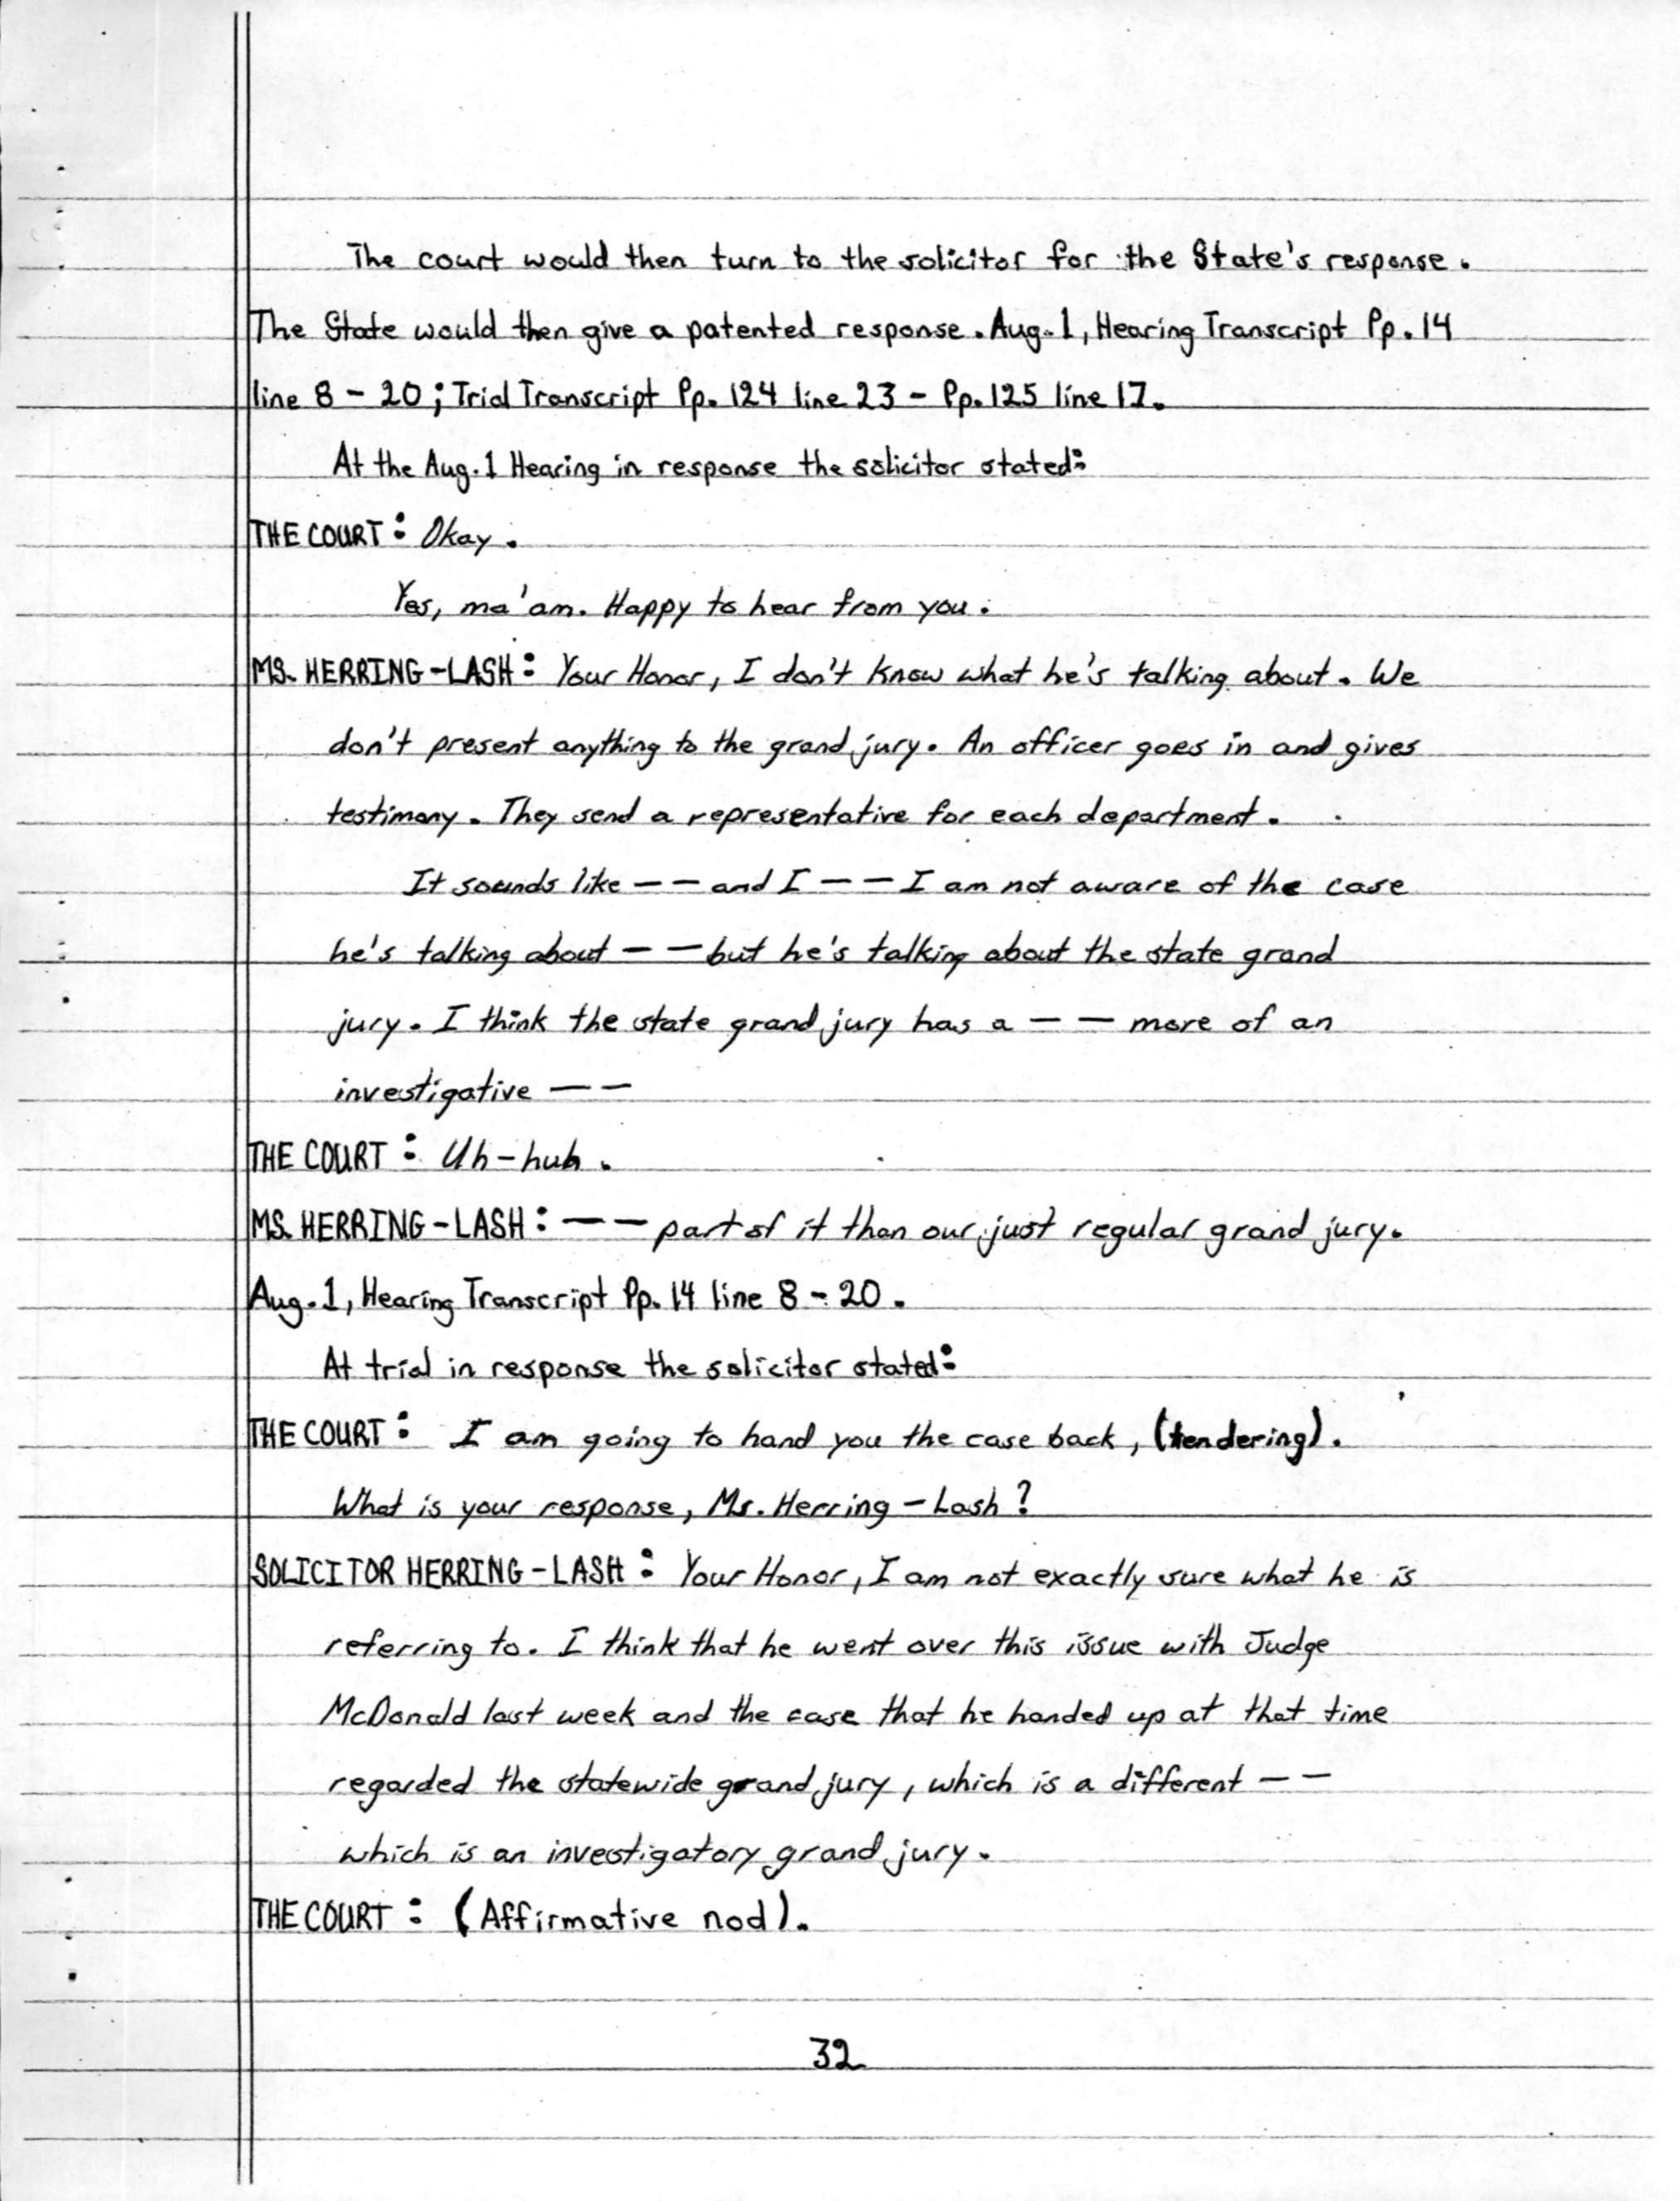 The court would then turn to the solicitor for the State's response.
The State would then give a patented response. Aug. 1, Hearing Transcript Pp. 14
line 8 - 20; Trial Transcript Pp. 124 line 23 - Pp. 125 line 17.
At the Aug. 1 Hearing in response the solicitor stated:
THE COURT: Okay.
Yes, ma'am. Happy to hear from you.
MS. HERRING-LASH: Your Honor, I don't know what he's talking about. We
don't present anything to the grand jury. An officer goes in and gives
testimony. They send a representative for each department.
It sounds like -- and I -- I am not aware of the case
he's talking about -- but he's talking about the state grand
jury. I think the state grand jury has a -- more of an
investigative --
THE COURT: Uh-huh.
MS. HERRING-LASH: -- part of it than our just regular grand jury.
Aug. 1, Hearing Transcript Pp. 14 line 8 - 20.
At trial in response the solicitor stated:
THE COURT: I am going to hand you the case back, (tendering).
What is your response, Ms. Herring-Lash?
SOLICITOR HERRING-LASH: Your Honor, I am not exactly sure what he is
referring to. I think that he went over this issue with Judge
McDonald last week and the case that he handed up at that time
regarded the statewide grand jury, which is a different --
which is an investigatory grand jury.
THE COURT: (Affirmative nod).
32